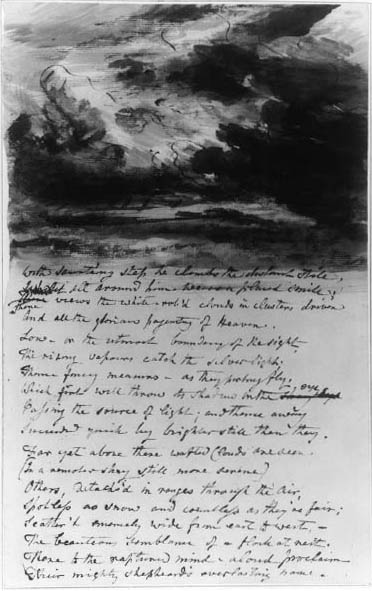 With sauntering step he climbs the distant stile,
Whilst all around him wears a placid smile;
There views the white-rob'd clouds in clusters driven
And all the glorious pageantry of Heaven.
Low – on the utmost boundary of the sight,
The rising vapours catch the silver light;
Thence fancy measures – as they parting fly,
Which first will throw its shadow on the eye,
Passing the source of light; and thence away
Succeeded quick by brighter still than they.
Far yet above these wafted clouds are seen
(In a remoter sky still more serene)
Others, detach'd in ranges through the air,
Spotless as snow and countless as they're fair;
Scatter'd immensely wide from east to west –
The beauteous semblance of a Flock at rest.
These to the raptured mind – aloud proclaim –
Their mighty shepherd's everlasting name –